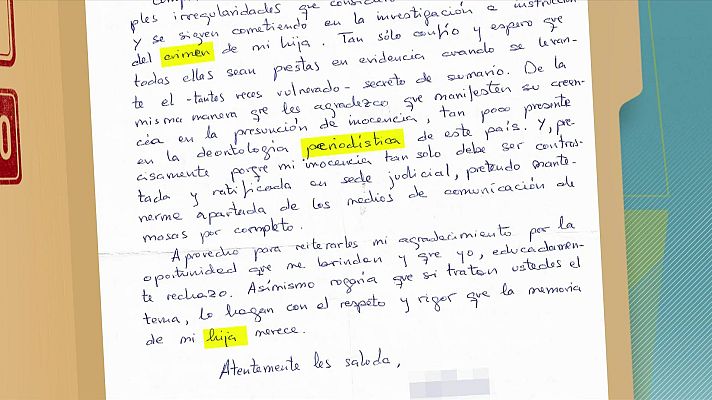 ples irregularidades que
y se siguen cometiendo en la investigación e instrucción
del crimen de mi hija. Tan sólo confío y espero que
todas ellas sean puestas en evidencia cuando se levan-
te el -tantas veces vulnerado- secreto de sumario. De la
misma manera que les agradezco que manifiesten su creen-
cia en la presunción de inocencia, tan poco presente
en la deontología periodística de este país. Y, pre-
cisamente porque mi inocencia tan solo debe ser contras-
tada y ratificada en sede judicial, pretendo mante-
nerme apartada de los medios de comunicación de
masas por completo.
Aprovecho para reiterarles mi agradecimiento por la
oportunidad que me brindan y que yo, educadamen-
te rechazo. Asimismo rogaría que si tratan ustedes el
tema, lo hagan con el respeto y rigor que la memoria
de mi hija merece.
Atentamente les saluda,